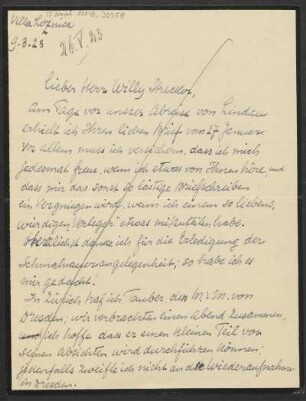 Villa Loznica
9.3.23
26.V.23
Lieber Herr Willy Strecker,
Am Tage vor unserer Abreise von Lindau
erhielt ich Ihren lieben Brief vom 27 Januar.
Vor allem muss ich versichern, dass ich mich
jedesmal freue, wenn ich etwas von Ihnen höre und
dass mir das sonst so lästige Briefschreiben
ein Vergnügen wird, wenn ich einem so liebens-
würdigen Verleger etwas mitzuteilen habe.
Herzlichst danke ich für die Erledigung der
angelegenheit; so habe ich es
mir gedacht.
In Zürich traf ich Tauber, den M.D. von
Dresden; wir verbrachten einen Abend zusammen,
und ich hoffe dass er einen kleinen Teil von
seinen Absichten wird durchführen können;
jedenfalls zweifle ich nicht an der Wiederaufnahme
in Dresden.